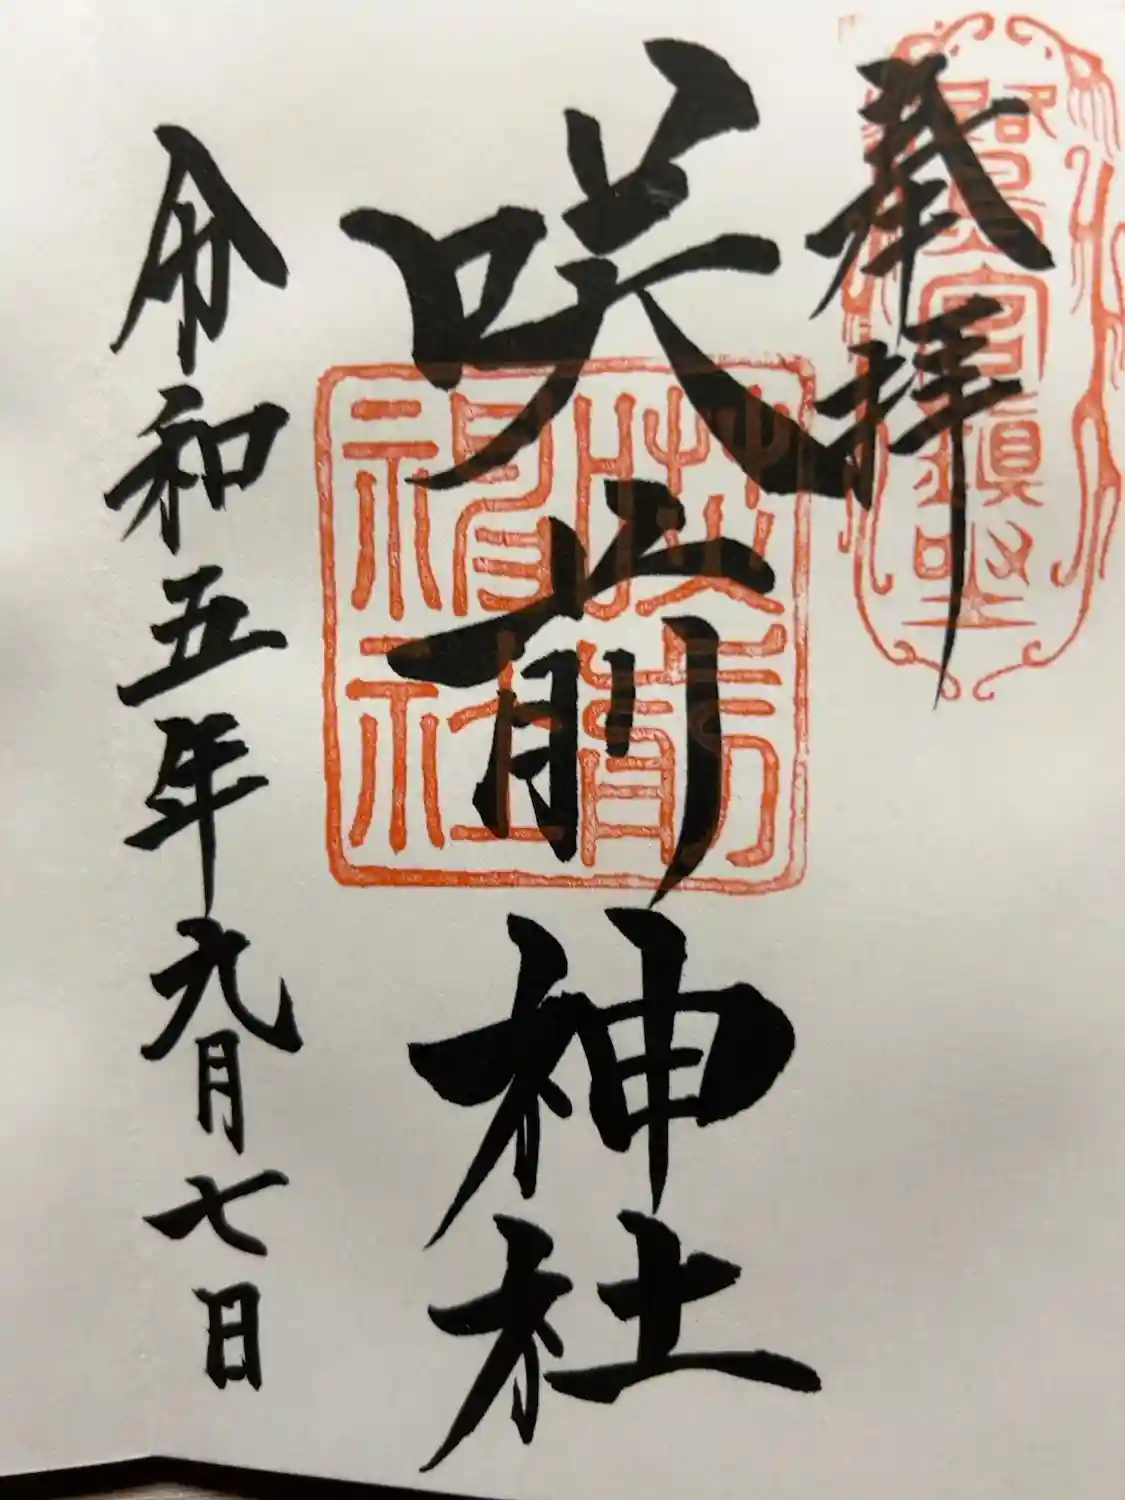 奉拝
咲前神社
令和五年九月七日